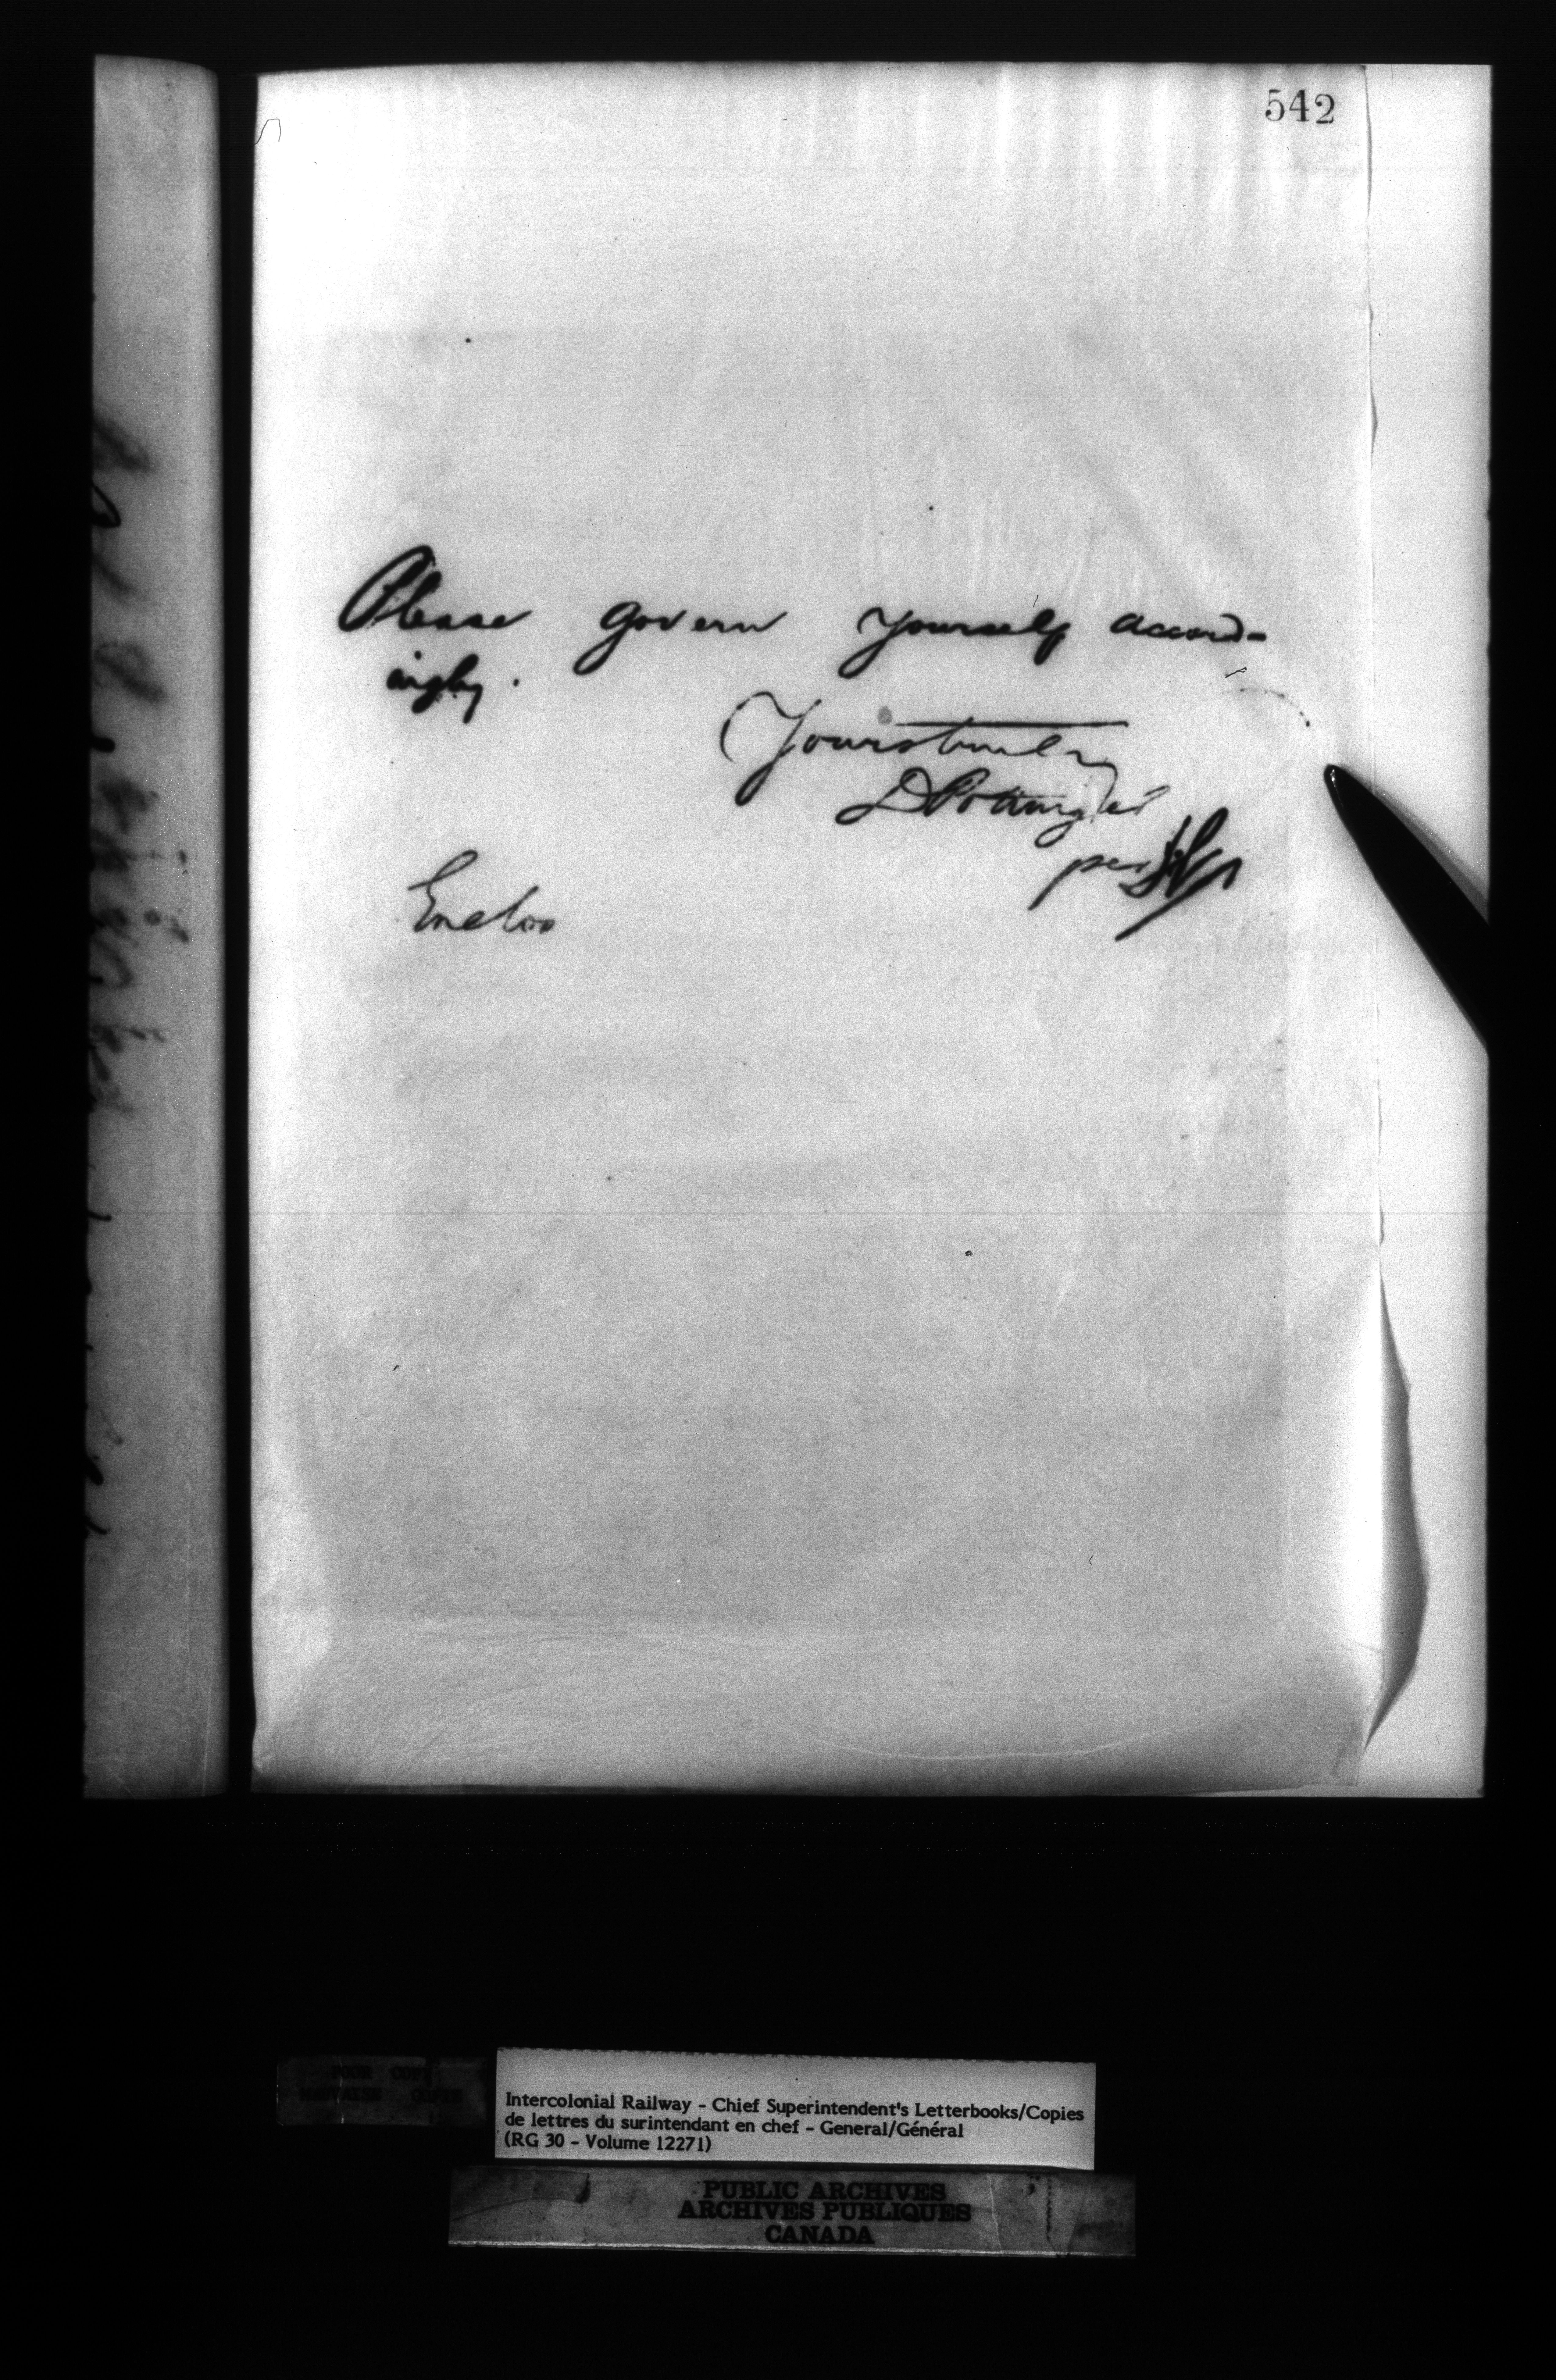 542
Please govern yourself accord-
ingly.
Yours truly
D Pottinger
per
Enclos
POOR COPY
MAUVAISE COPIE
Intercolonial Railway - Chief Superintendent's Letterbooks/Copies
de lettres du surintendant en chef - General/Général
(RG 30 - Volume 12271)
PUBLIC ARCHIVES
ARCHIVES PUBLIQUES
CANADA